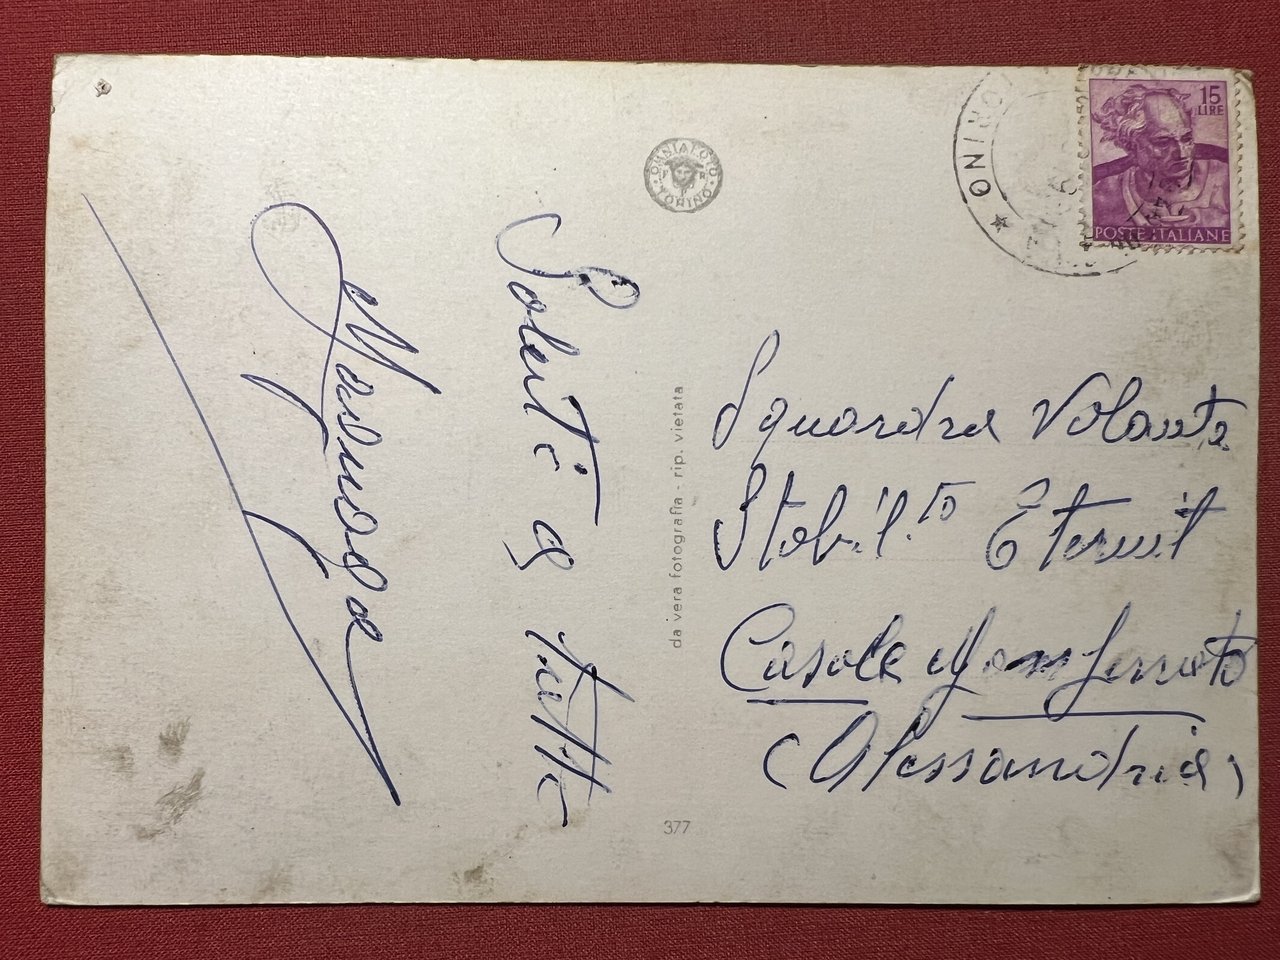 Saluti a tutti
OMNIAFOTO
TORINO
da vera fotografia - rip. vietata
377
15
LIRE
POSTE ITALIANE
Squardra Volante
Stabil.to Eternit
Casale Monferrato
(Alessandria)